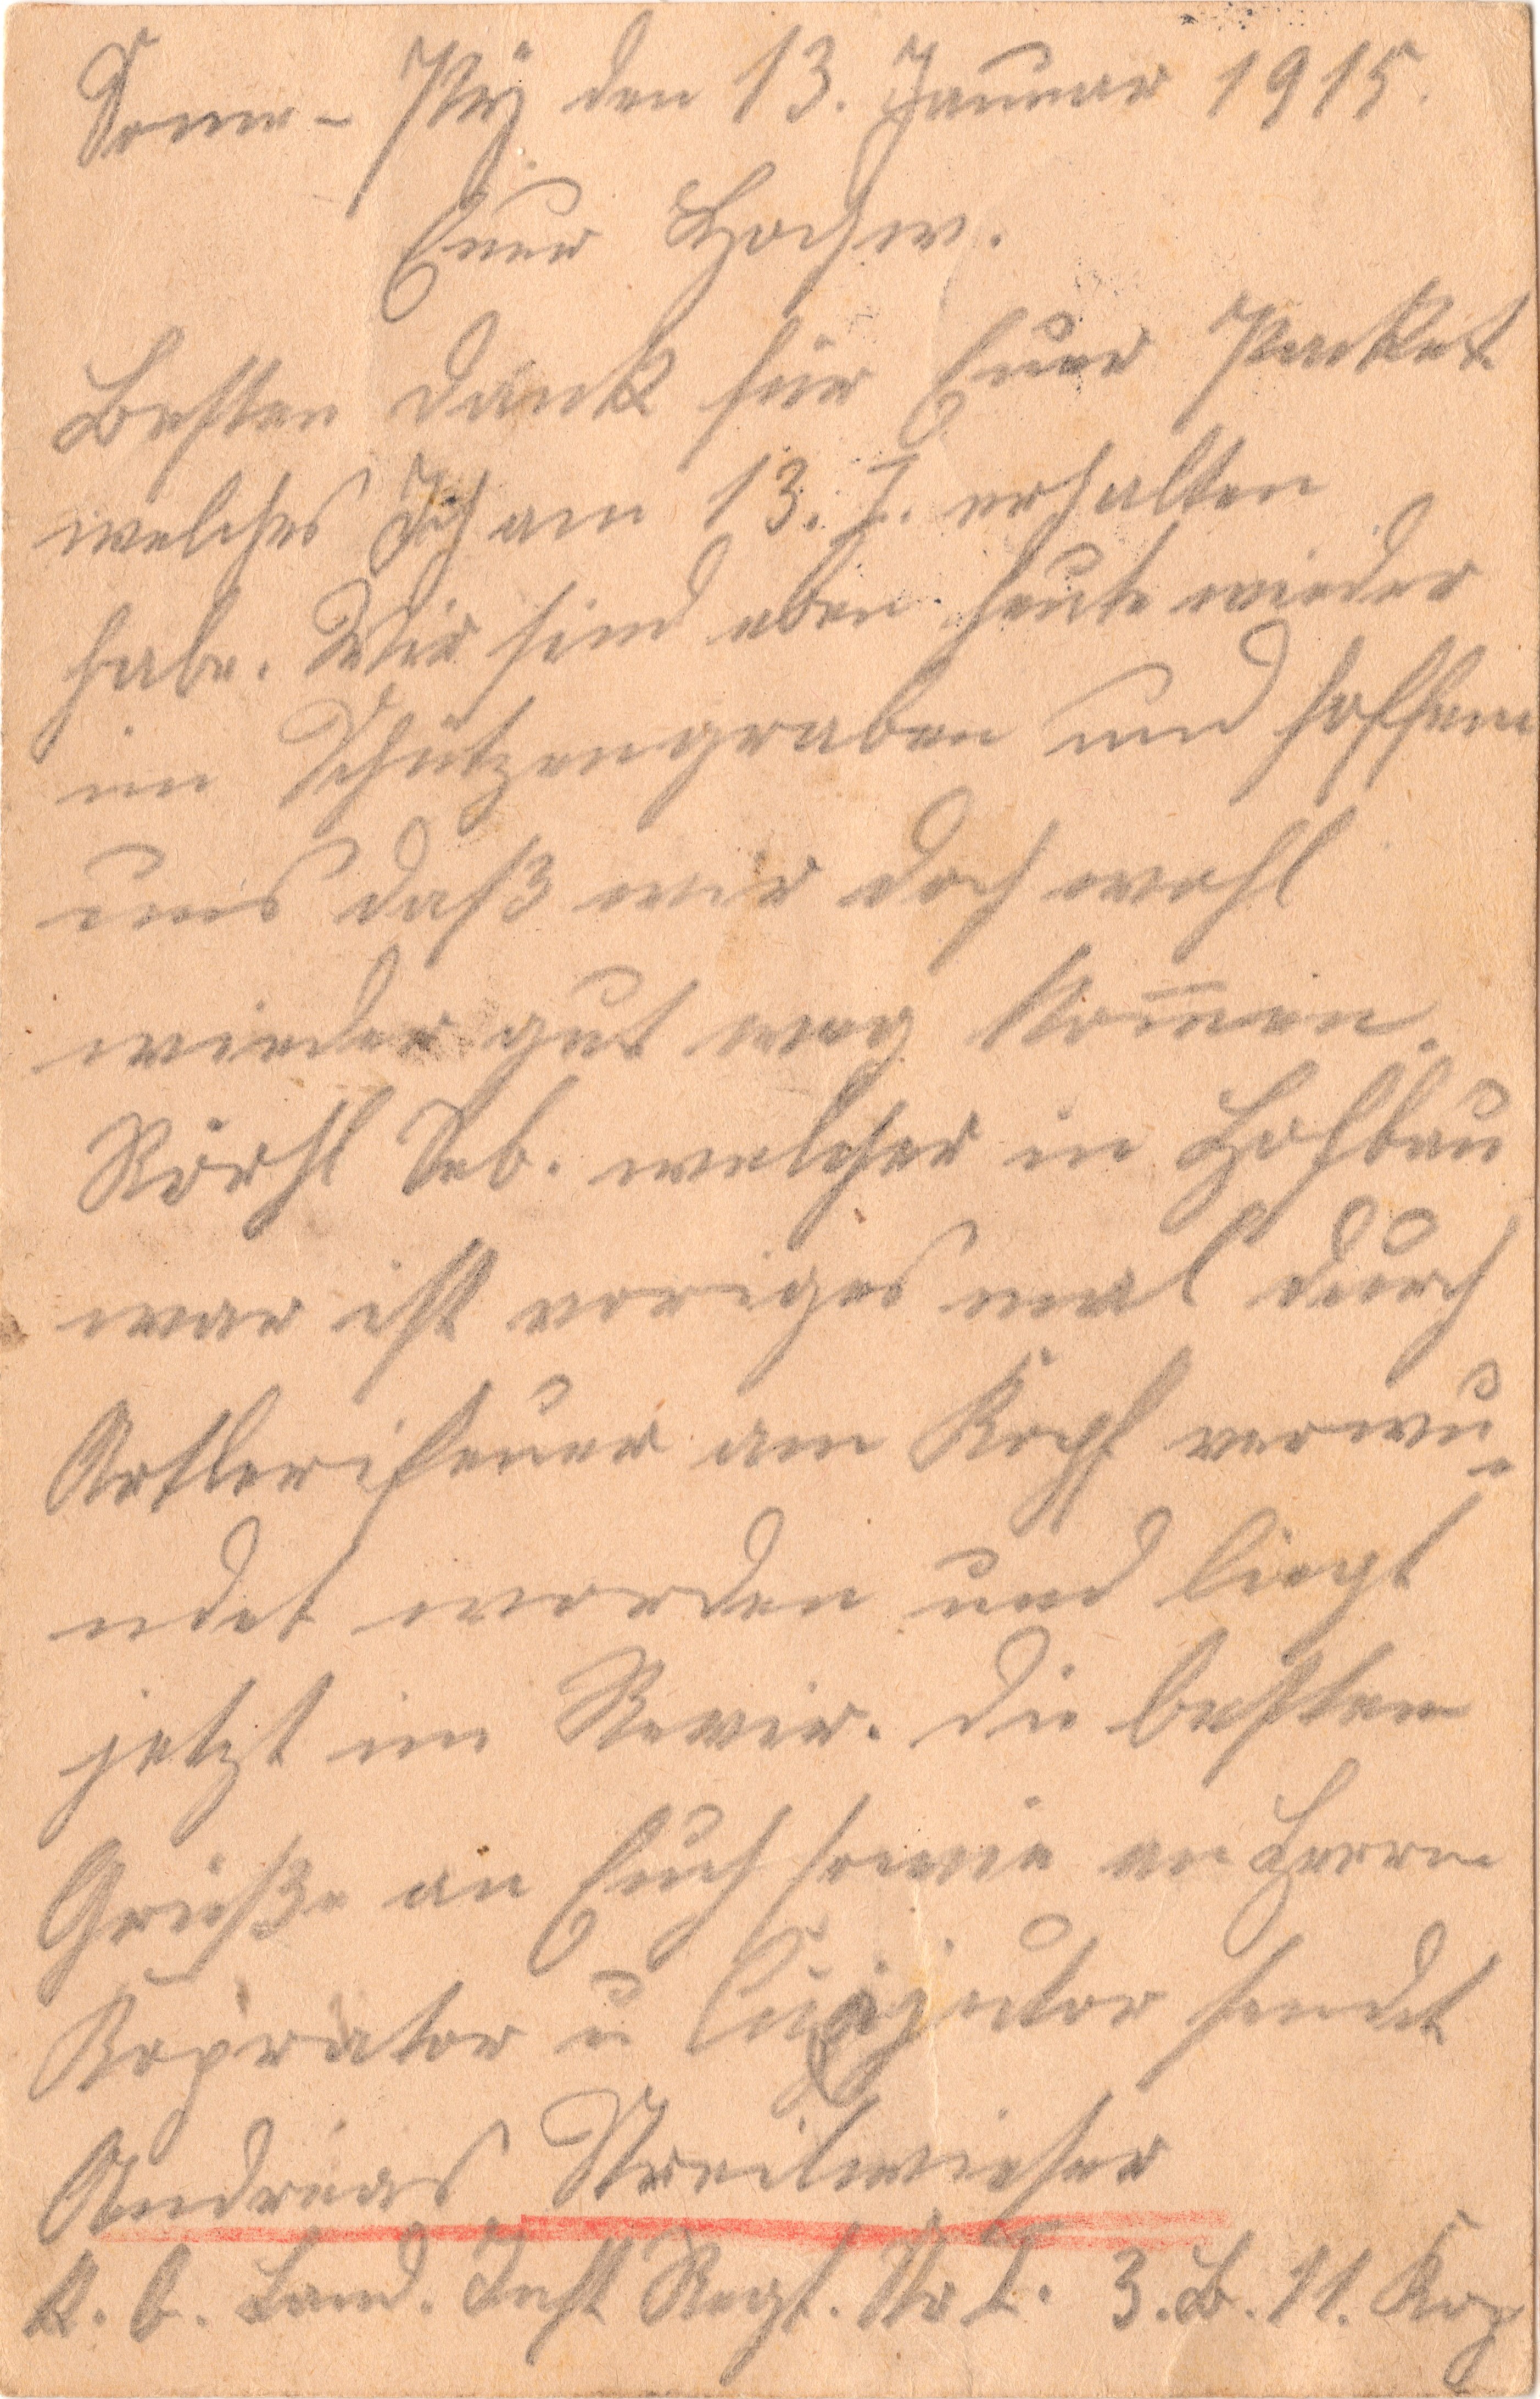 Somm-Py den 13. Januar 1915.
Euer Hochw.
Besten Dank für Euer Packet
welches Ich am 13. I. erhalten
habe. Wir sind eben heute wieder
im Schützengraben und hoffen
uns daß wir doch wohl
wieder gut weg kom̅en.
Seb. welcher in Hofbau
war ist voriges mal durch
Artlerifeuer am Kopf verwu-
ndet worden und liegt
jetzt im Revir. Die besten
Grüße an Euch sowie an Herrn
Koprator u Cuzjutor sendet
Andreas Streilwieser
K. b. Land. Inft Regt. No I. 3. B. 11. Kop